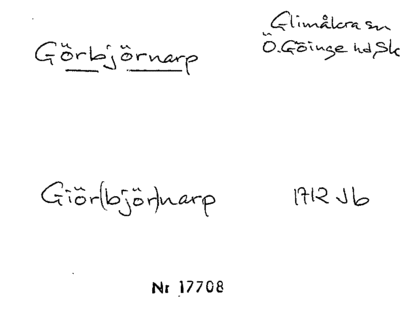 Görbjörnarp
Glimåkra sn
Ö. Göinge hd, Sk
Giör(björ)narp
1712 Jb
Nr 17708